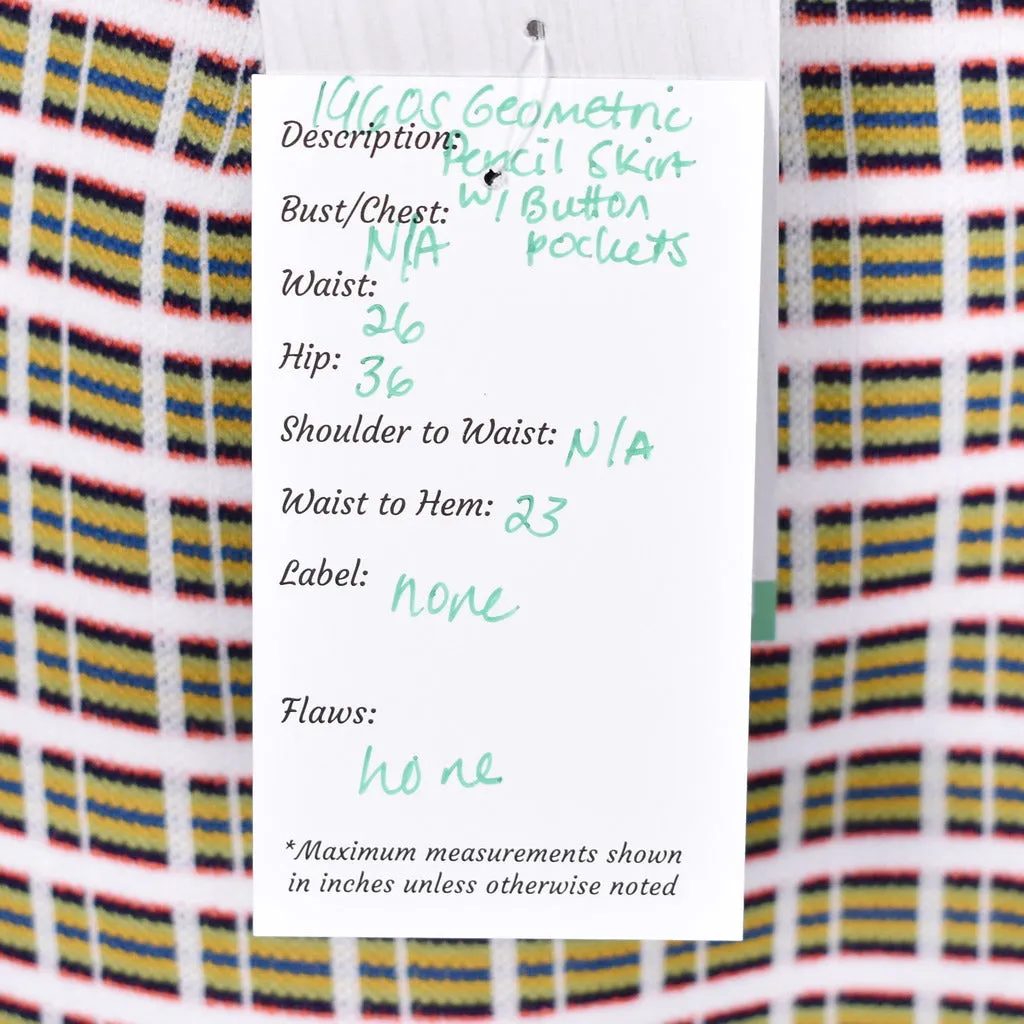 1960s Geometric
Description: Pencil Skirt
w/ Button
Bust/Chest:
N/A pockets
Waist:
26
Hip: 36
Shoulder to Waist: N/A
Waist to Hem: 23
Label: none
Flaws:
none
*Maximum measurements shown
in inches unless otherwise noted